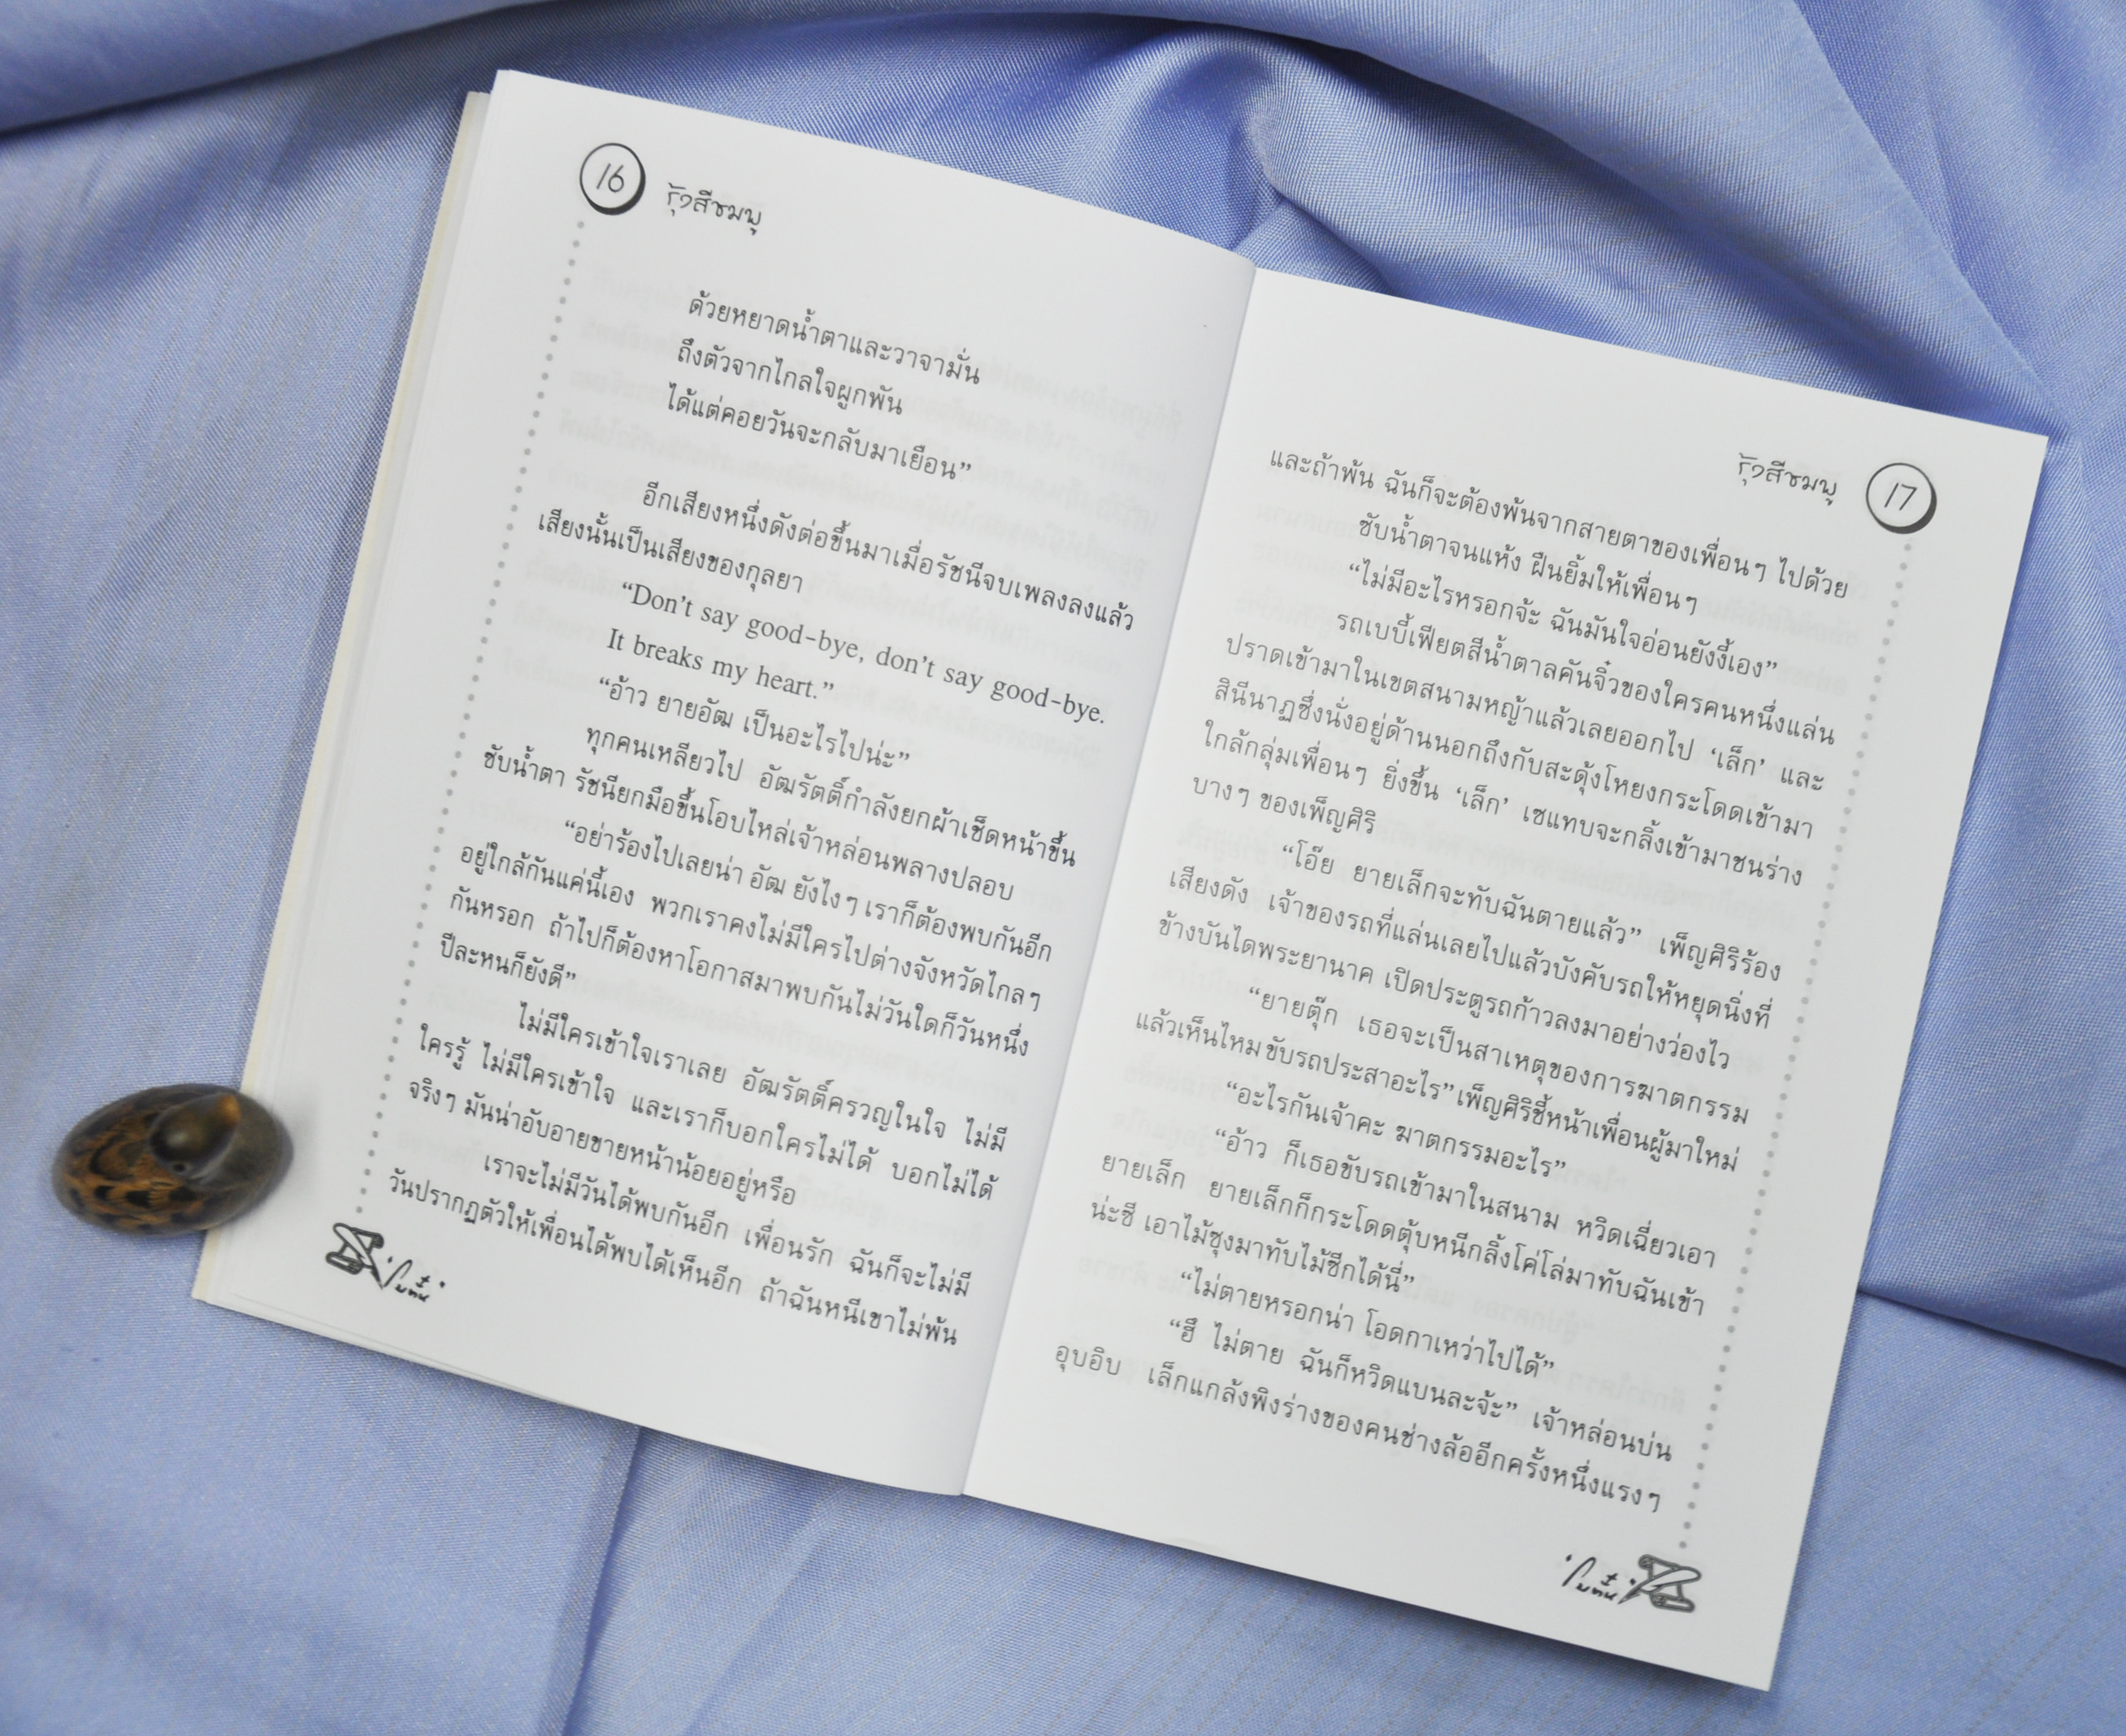 16
รั้วสีชมพู
ด้วยหยาดน้ำตาและวาจามั่น
ถึงตัวจากไกลใจผูกพัน
ได้แต่คอยวันจะกลับมาเยือน”
อีกเสียงหนึ่งดังต่อขึ้นมาเมื่อรัชนีจบเพลงลงแล้ว
เสียงนั้นเป็นเสียงของกุลยา
“Don’t say good-bye, don’t say good-bye.
It breaks my heart.”
“อ้าว ยายอัฒ เป็นอะไรไปน่ะ”
ทุกคนเหลียวไป อัฒรัตติ์กำลังยกผ้าเช็ดหน้าขึ้น
ซับน้ำตา รัชนียกมือขึ้นโอบไหล่เจ้าหล่อนพลางปลอบ
“อย่าร้องไปเลยน่า อัฒ ยังไงๆ เราก็ต้องพบกันอีก
อยู่ใกล้กันแค่นี้เอง พวกเราคงไม่มีใครไปต่างจังหวัดไกลๆ
กันหรอก ถ้าไปก็ต้องหาโอกาสมาพบกันไม่วันใดก็วันหนึ่ง
ปีละหนก็ยังดี”
ไม่มีใครเข้าใจเราเลย อัฒรัตติ์ครวญในใจ ไม่มี
ใครรู้ ไม่มีใครเข้าใจ และเราก็บอกใครไม่ได้ บอกไม่ได้
จริงๆ มันน่าอับอายขายหน้าน้อยอยู่หรือ
เราจะไม่มีวันได้พบกันอีก เพื่อนรัก ฉันก็จะไม่มี
วันปรากฏตัวให้เพื่อนได้พบได้เห็นอีก ถ้าฉันหนีเขาไม่พ้น
รั้วสีชมพู
17
และถ้าพ้น ฉันก็จะต้องพ้นจากสายตาของเพื่อนๆ ไปด้วย
ซับน้ำตาจนแห้ง ฝืนยิ้มให้เพื่อนๆ
“ไม่มีอะไรหรอกจ้ะ ฉันมันใจอ่อนยังงี้เอง”
รถเบบี้เฟียตสีน้ำตาลคันจิ๋วของใครคนหนึ่งแล่น
ปราดเข้ามาในเขตสนามหญ้าแล้วเลยออกไป ‘เล็ก’ และ
สินีนาฏซึ่งนั่งอยู่ด้านนอกถึงกับสะดุ้งโหยงกระโดดเข้ามา
ใกล้กลุ่มเพื่อนๆ ยิ่งขึ้น ‘เล็ก’ เซแทบจะกลิ้งเข้ามาชนร่าง
บางๆ ของเพ็ญศิริ
“โอ๊ย ยายเล็กจะทับฉันตายแล้ว” เพ็ญศิริร้อง
เสียงดัง เจ้าของรถที่แล่นเลยไปแล้วบังคับรถให้หยุดนิ่งที่
ข้างบันไดพระยานาค เปิดประตูรถก้าวลงมาอย่างว่องไว
“ยายตุ๊ก เธอจะเป็นสาเหตุของการฆาตกรรม
แล้วเห็นไหม ขับรถประสาอะไร” เพ็ญศิริชี้หน้าเพื่อนผู้มาใหม่
“อะไรกันเจ้าคะ ฆาตกรรมอะไร”
“อ้าว ก็เธอขับรถเข้ามาในสนาม หวิดเฉี่ยวเอา
ยายเล็ก ยายเล็กก็กระโดดตุ้บหนีกลิ้งโค่โล่มาทับฉันเข้า
น่ะซี เอาไม้ซุงมาทับไม้ซีกได้นี่”
“ไม่ตายหรอกน่า โอดกาเหว่าไปได้”
“ฮึ ไม่ตาย ฉันก็หวิดแบนละจ้ะ” เจ้าหล่อนบ่น
อุบอิบ เล็กแกล้งพิงร่างของคนช่างล้ออีกครั้งหนึ่งแรงๆ